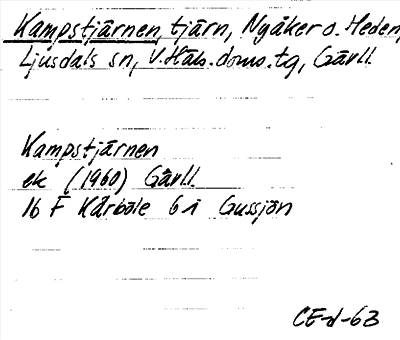 Kampstjärnen, tjärn, Nyåker o. Heden,
Ljusdals sn, V. Häls. doms. tg, Gävll.
Kampstjärnen
ek (1960) Gävll.
16 F Kårböle 6 i Gussjön
CE-d-63